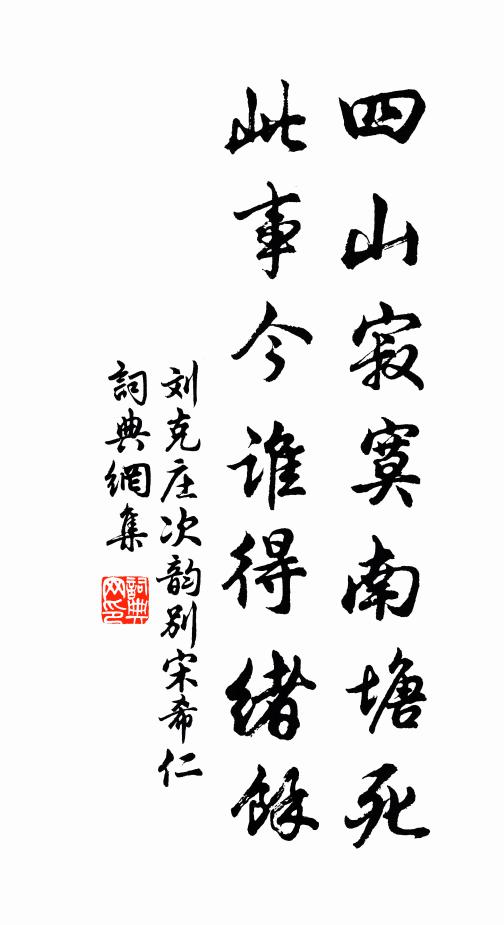 四山寂寞南塘死
此事今谁得绪餘
刘克庄次韵别宋希仁
詞典網集
詞典
网印